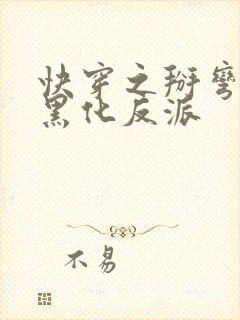 快穿之掰弯
黑化反派
不易